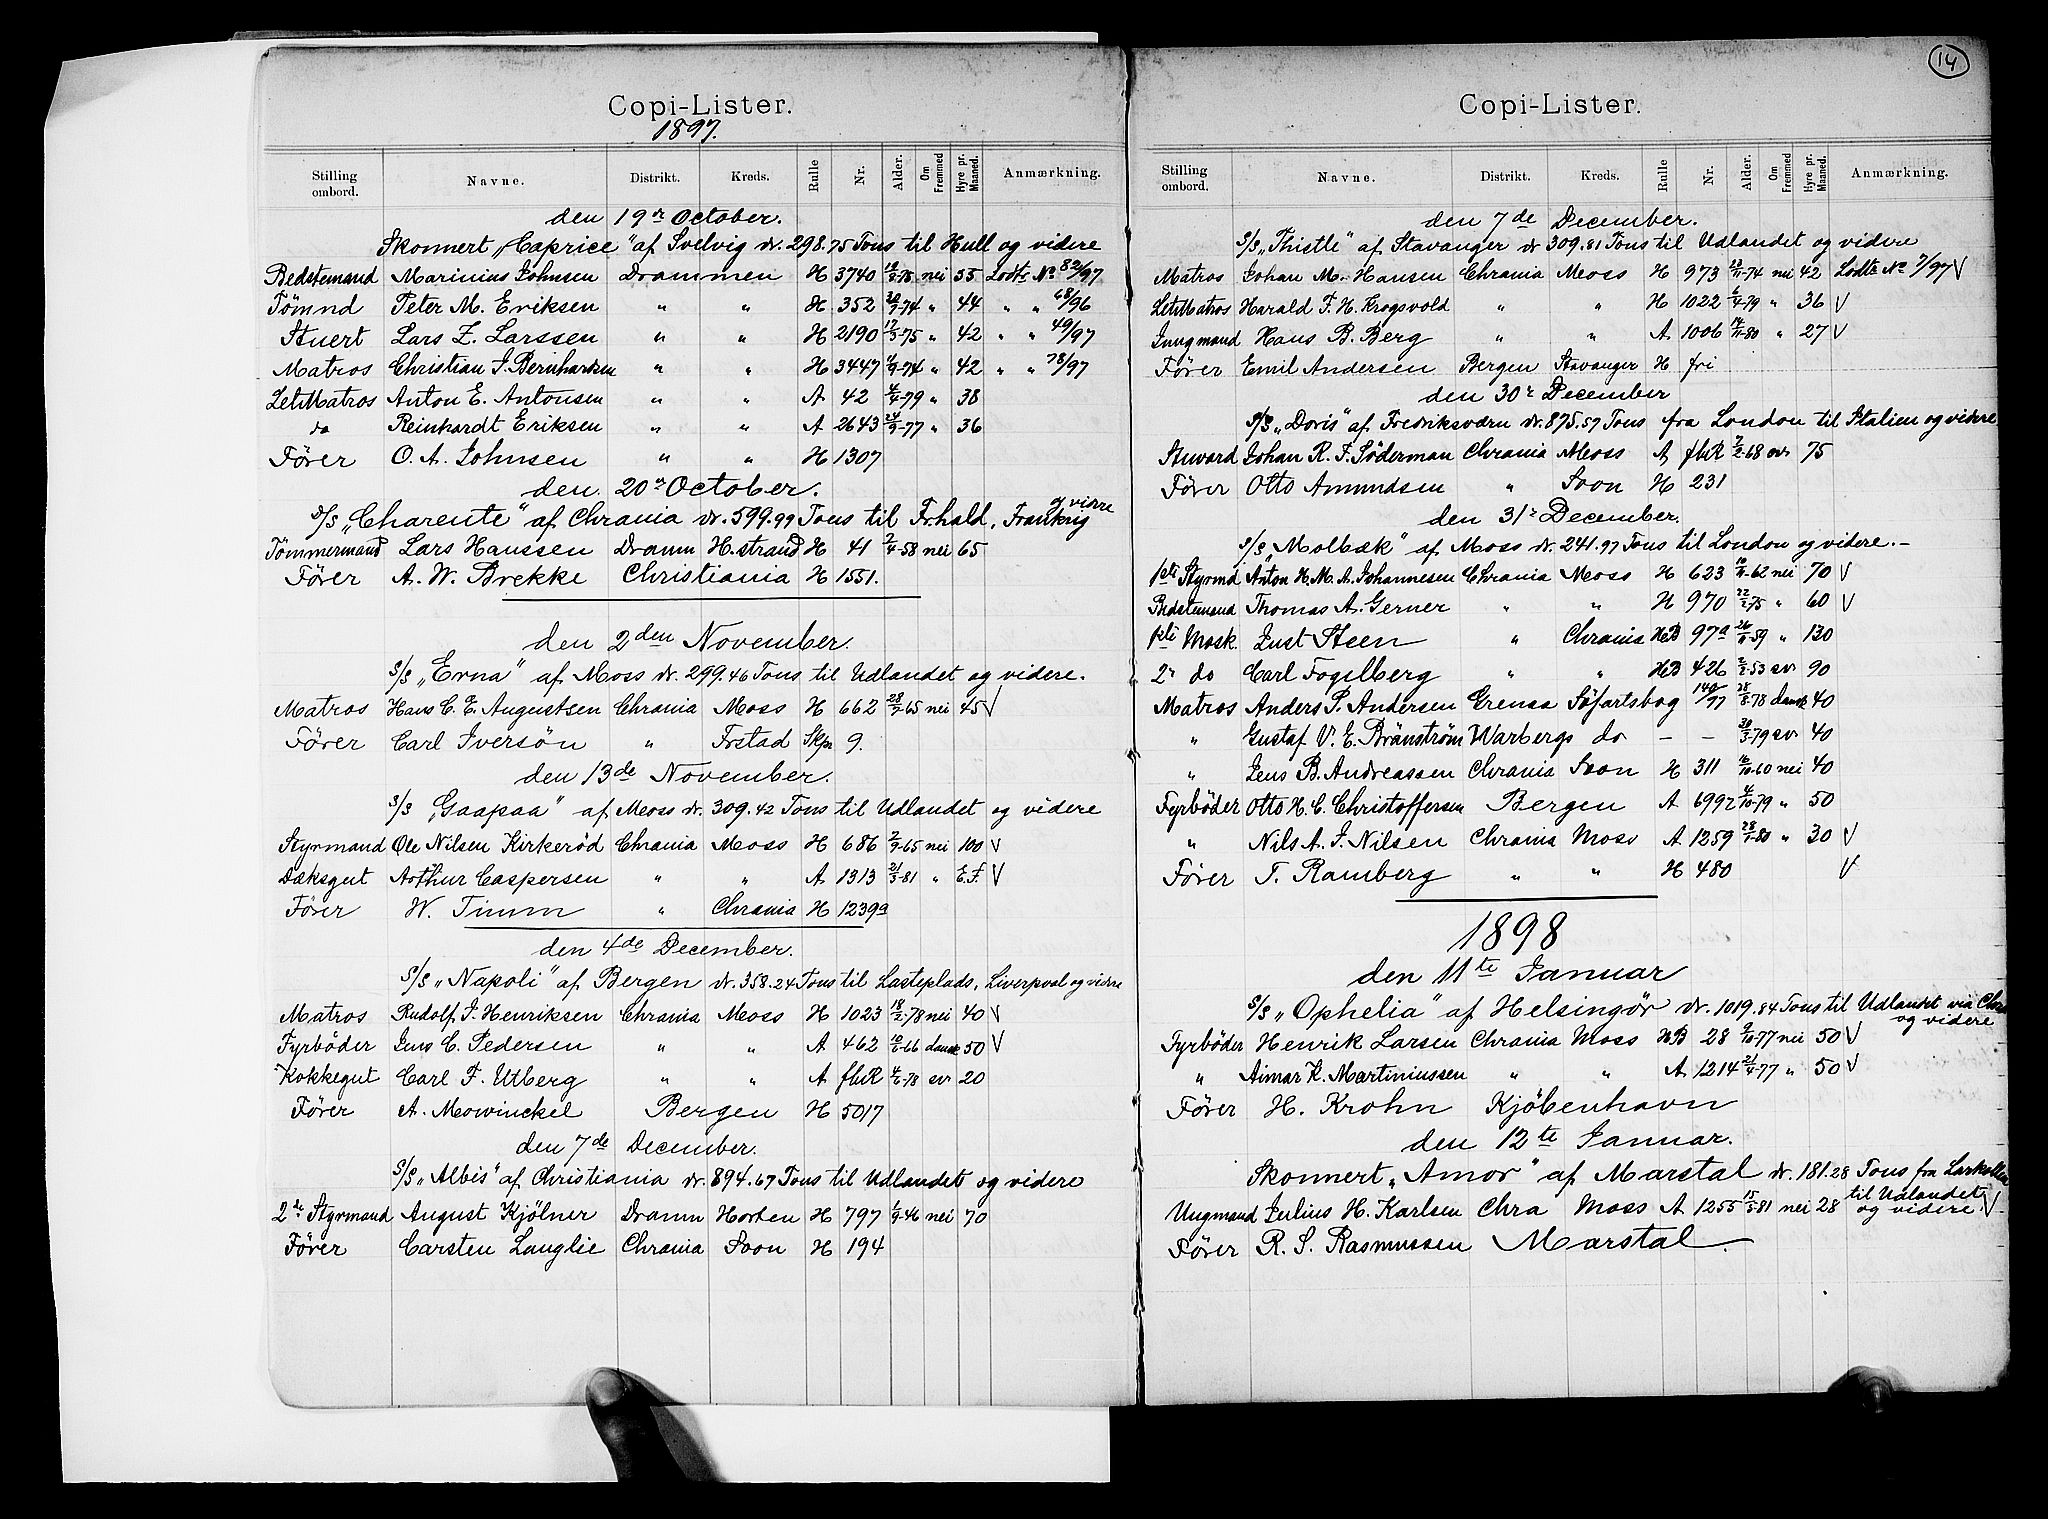 Copi-Lister.
1897.
Stilling ombord. Navne. Distrikt. Kreds. Rulle Nr. Alder. Om Fremmed Hyre pr. Maaned. Anmærkning.
den 19de October.
Skonnert „Caprice" af Svelvig dr. 298.75 Tons til Hull og videre
Bedstemand Marinius Johnsen Drammen H 3740 nei 55 Lodts No 82/97
Tømnd Peter M. Eriksen " " H 352 " 44 " " 68/96
Stuert Lars Z. Larssen " " H 2190 17/3-75 " 42 " " 49/97
Matros Christian J. Bernhardsen " " H 3447 " 42 " " 78/97
LetMatros Anton E. Antonsen " " A 42 4/4-79 " 38
do Reinhardt Eriksen " " A 2643 24/9-77 " 36
Fører O. A. Johnsen " " H 1307
den 20de October.
S/S „Charente" af Chrania dr. 599.99 Tons til Frhald, Frankrig og videre
Tømmermand Lars Hanssen Dramn H.strand H 41 2/4-58 nei 65
Fører A. W. Brekke Christiania H 1551.
den 2den November.
S/S „Erna" af Moss dr. 299.46 Tons til Udlandet og videre.
Matros Hans C. E. Augustsen Chrania Moss H 662 nei 45 V
Fører Carl Iversøn " Frstad Skpr 9.
den 13de November.
S/S „Gaapaa" af Moss dr. 309.42 Tons til Udlandet og videre
Styrmand Ole Nilsen Kirkerød Chrania Moss H 686 2/9-65 nei 100 V
Dæksgut Arthur Caspersen " " A 1313 21/3-81 " E.F. V
Fører W. Timm " Chrania H 1239a
den 4de December.
S/S „Napoli" af Bergen dr. 358.24 Tons til Lasteplads, Liverpool og videre
Matros Rudolf J. Henriksen Chrania Moss H 1023 18/2-78 nei 40 V
Fyrbøder Jens C. Pedersen " " A 462 10/6-66 dansk 50 V
Kokkegut Carl F. Utberg " " A fhR 4/6-78 sv 20
Fører A. Mowinckel Bergen H 5017
den 7de December.
S/S „Albis" af Christiania dr. 894.67 Tons til Udlandet og videre
2de Styrmand August Kjølner Dramn Horten H 797 1/9-46 nei 70
Fører Carsten Langlie Chrania Soon H 194
14
Copi-Lister.
Stilling ombord. Navne. Distrikt. Kreds. Rulle Nr. Alder. Om Fremmed Hyre pr. Maaned. Anmærkning.
den 7de December.
S/S „Thistle" af Stavanger dr 309.81 Tons til Udlandet og videre
Matros Johan M. Hansen Chrania Moss H 973 23/11-74 nei 42 Lodts No 7/97 V
LetMatros Harald F. H. Krogsvold " " H 1022 6/4-79 " 36 V
Jungmand Hans B. Berg " " A 1006 14/11-80 " 27 V
Fører Emil Andersen Bergen Stavanger H fri
den 30te December
S/S „Doris" af Fredriksværn dr. 875.57 Tons fra London til Italien og videre
Stuvard Johan R. F. Söderman Chrania Moss A fhR 7/2-68 sv 75
Fører Otto Amundsen " Soon H 231
den 31te December.
S/S „Molbæk" af Moss dr. 241.97 Tons til London og videre.-
1ste Styrmd Anton H. M. A. Johannesen Chrania Moss H 623 nei 70 V
Bedstemand Thomas A. Gerner " " H 970 22/2-75 " 60 V
1ste Mask. Just Steen " Chrania HB 97a " 130
2n do Carl Fogelberg " " HB 426 2/2-53 sv 90
Matros Anders P. Andersen Grenaa Søfartsbog 140/97 28/8-78 dansk 40
" Gustaf V. E. Bränström Warbergs do - - 30/3-79 sv 40
" Jens B. Andreassen Chrania Soon H 311 16/10-60 nei 40
Fyrbøder Otto H. C. Christoffersen Bergen A 6992 4/10-79 " 50
" Nils A. J. Nilsen Chrania Moss A 1259 28/1-80 " 30 V
Fører T. Ramberg " " H 480 V
1898
den 11te Januar
S/S „Ophelia" af Helsingør dr. 1019.84 Tons til Udlandet via Chra og videre
Fyrbøder Henrik Larsen Chrania Moss HB 28 9/10-77 nei 50 V
" Aimar K. Martiniussen " " A 1214 21/4-77 " 50 V
Fører H. Krohn Kjöbenhavn
den 12te Januar.
Skonnert „Amor" af Marstal dr. 181.28 Tons fra Larkollen til Udlandet og videre
Ungmand Julius H. Karlsen Chra Moss A 1255 15/5-81 nei 28 V
Fører R. S. Rasmussen Marstal.